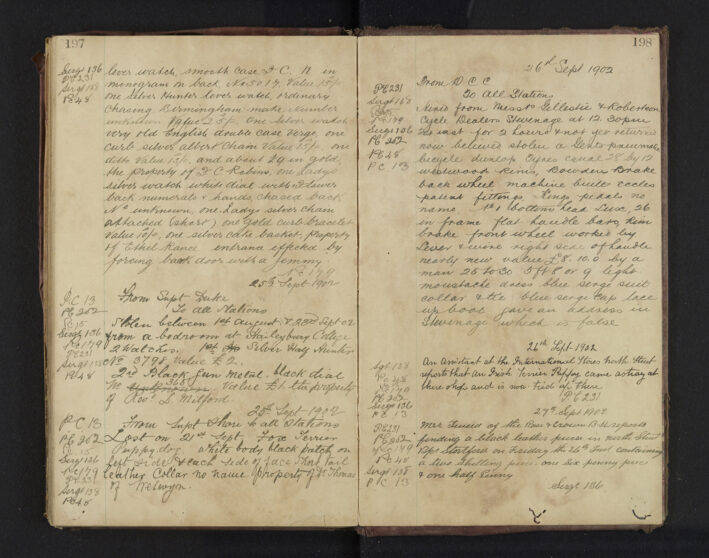 197
Sergt 136
PC 231
Sergt 158
PC 48
lever watch, smooth case F. C. R. in
monogram on back No 3017 Value 15/-
One Silver Hunter lever watch ordinary
chasing Birmingham make number
unknown Value 25/-, One Silver watch
very old English double case Verge, one
curb silver albert Chain Value 15/-, one
ditto Value 15/-, and about £9 in gold,
the property of F C Rabins, one Ladys
silver watch white dial with
back numerals & hands, chased back
No unknown, one Ladys silver chain
attached (short), one gold curb bracelet
Value 10/-, one silver cake basket, property
of Ethel Rand entrance effected by
forcing back door with a jemmy.
PC 179
25th Sept 1902
From Supt Duke
To all Stations
PC 13
PC 202
Sergt 136
PC 179
PC 231
Sergt 158
PC 48
Stolen between 1st August & 23rd Sept 02
from a bedroom at Haileybury College
2 Watches. 1st Silver Half Hunter
No 3798 Value £2.
2nd Black gun metal, black dial
No 365 Value £1 the property
of Revd L Milford.
25th Sept 1902
From Supt to all Stations
PC 13
PC 202
PC 15
Sergt 136
PC 179
PC 231
Sergt 158
PC 48
Lost on 21st Sept Fox Terrier
Puppy dog white body black patch on
left side & each side of face Short tail
leather Collar no name property of Dr Thomas
of Welwyn.
198
26th Sept 1902
From D. C. C
To All Stations
PC 231
Sergt 158
PC 179
Sergt 136
PC 202
PC 48
PC 13
Hired from Messrs Gillespie & Robertson
Cycle Dealers Stevenage at 12.30pm
inst for 2 hours & not yet returned
now believed stolen a Gents pneumatic
bicycle dunlop Tyres 28 by 1½
Westwood Rims, Bowden Brake
back wheel machine built eccles
patent fittings, Kings pedals no
name bottom head Size, 26
in frame flat handle bars Rim
brake front wheel worked by
lever & wire right side of handle
nearly new value £8. 10. 0 by a
man 25 to 30 5 ft 8 or 9 light
moustache dress blue serge suit
collar & tie blue serge cap lace
up boots gave an address in
Stevenage which is false
26th Sept 1902
Sgt 158
PC 48
PC 179
PC 202
Sergt 136
PC 13
An Assistant at the International Stores North Street
reports that an Irish Terrier Puppy came astray at
there shop and is now tied up there
PC 231
27th Sept 1902
PC 231
PC 202
PC 179
PC 48
Sergt 158
PC 13
Mr of the Rose & Crown B.S. reports
finding a black leather purse in North Street
Bps Stortford on Friday the 26th Inst containing
a two shilling piece one six penny piece
& one half penny
Sergt 136